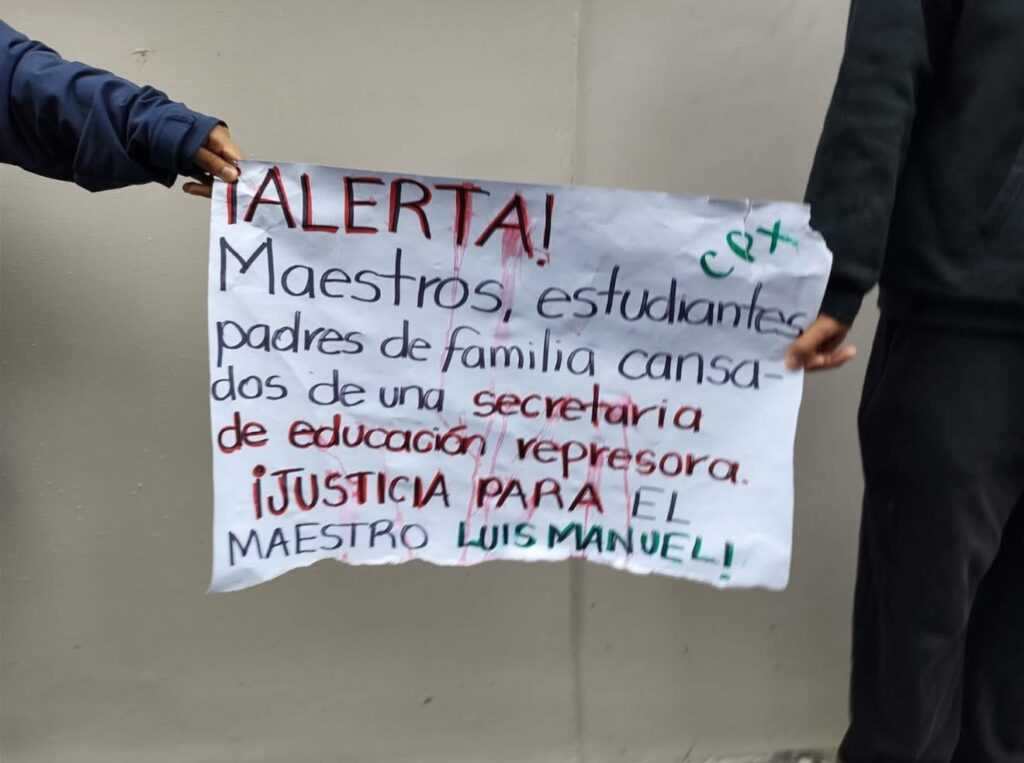 ¡ALERTA!
CRX
Maestros, estudiantes
padres de familia cansa-
dos de una secretaria
de educación represora.
¡JUSTICIA PARA EL
MAESTRO LUIS MANUEL!